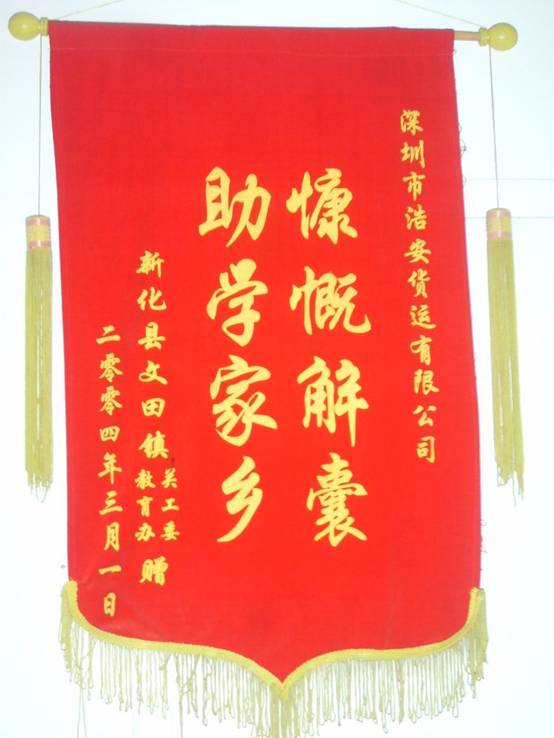 深圳市浩安货运有限公司
慷慨解囊
助学家乡
新化县文田镇
关工委
教育办
赠
二零零四年三月一日